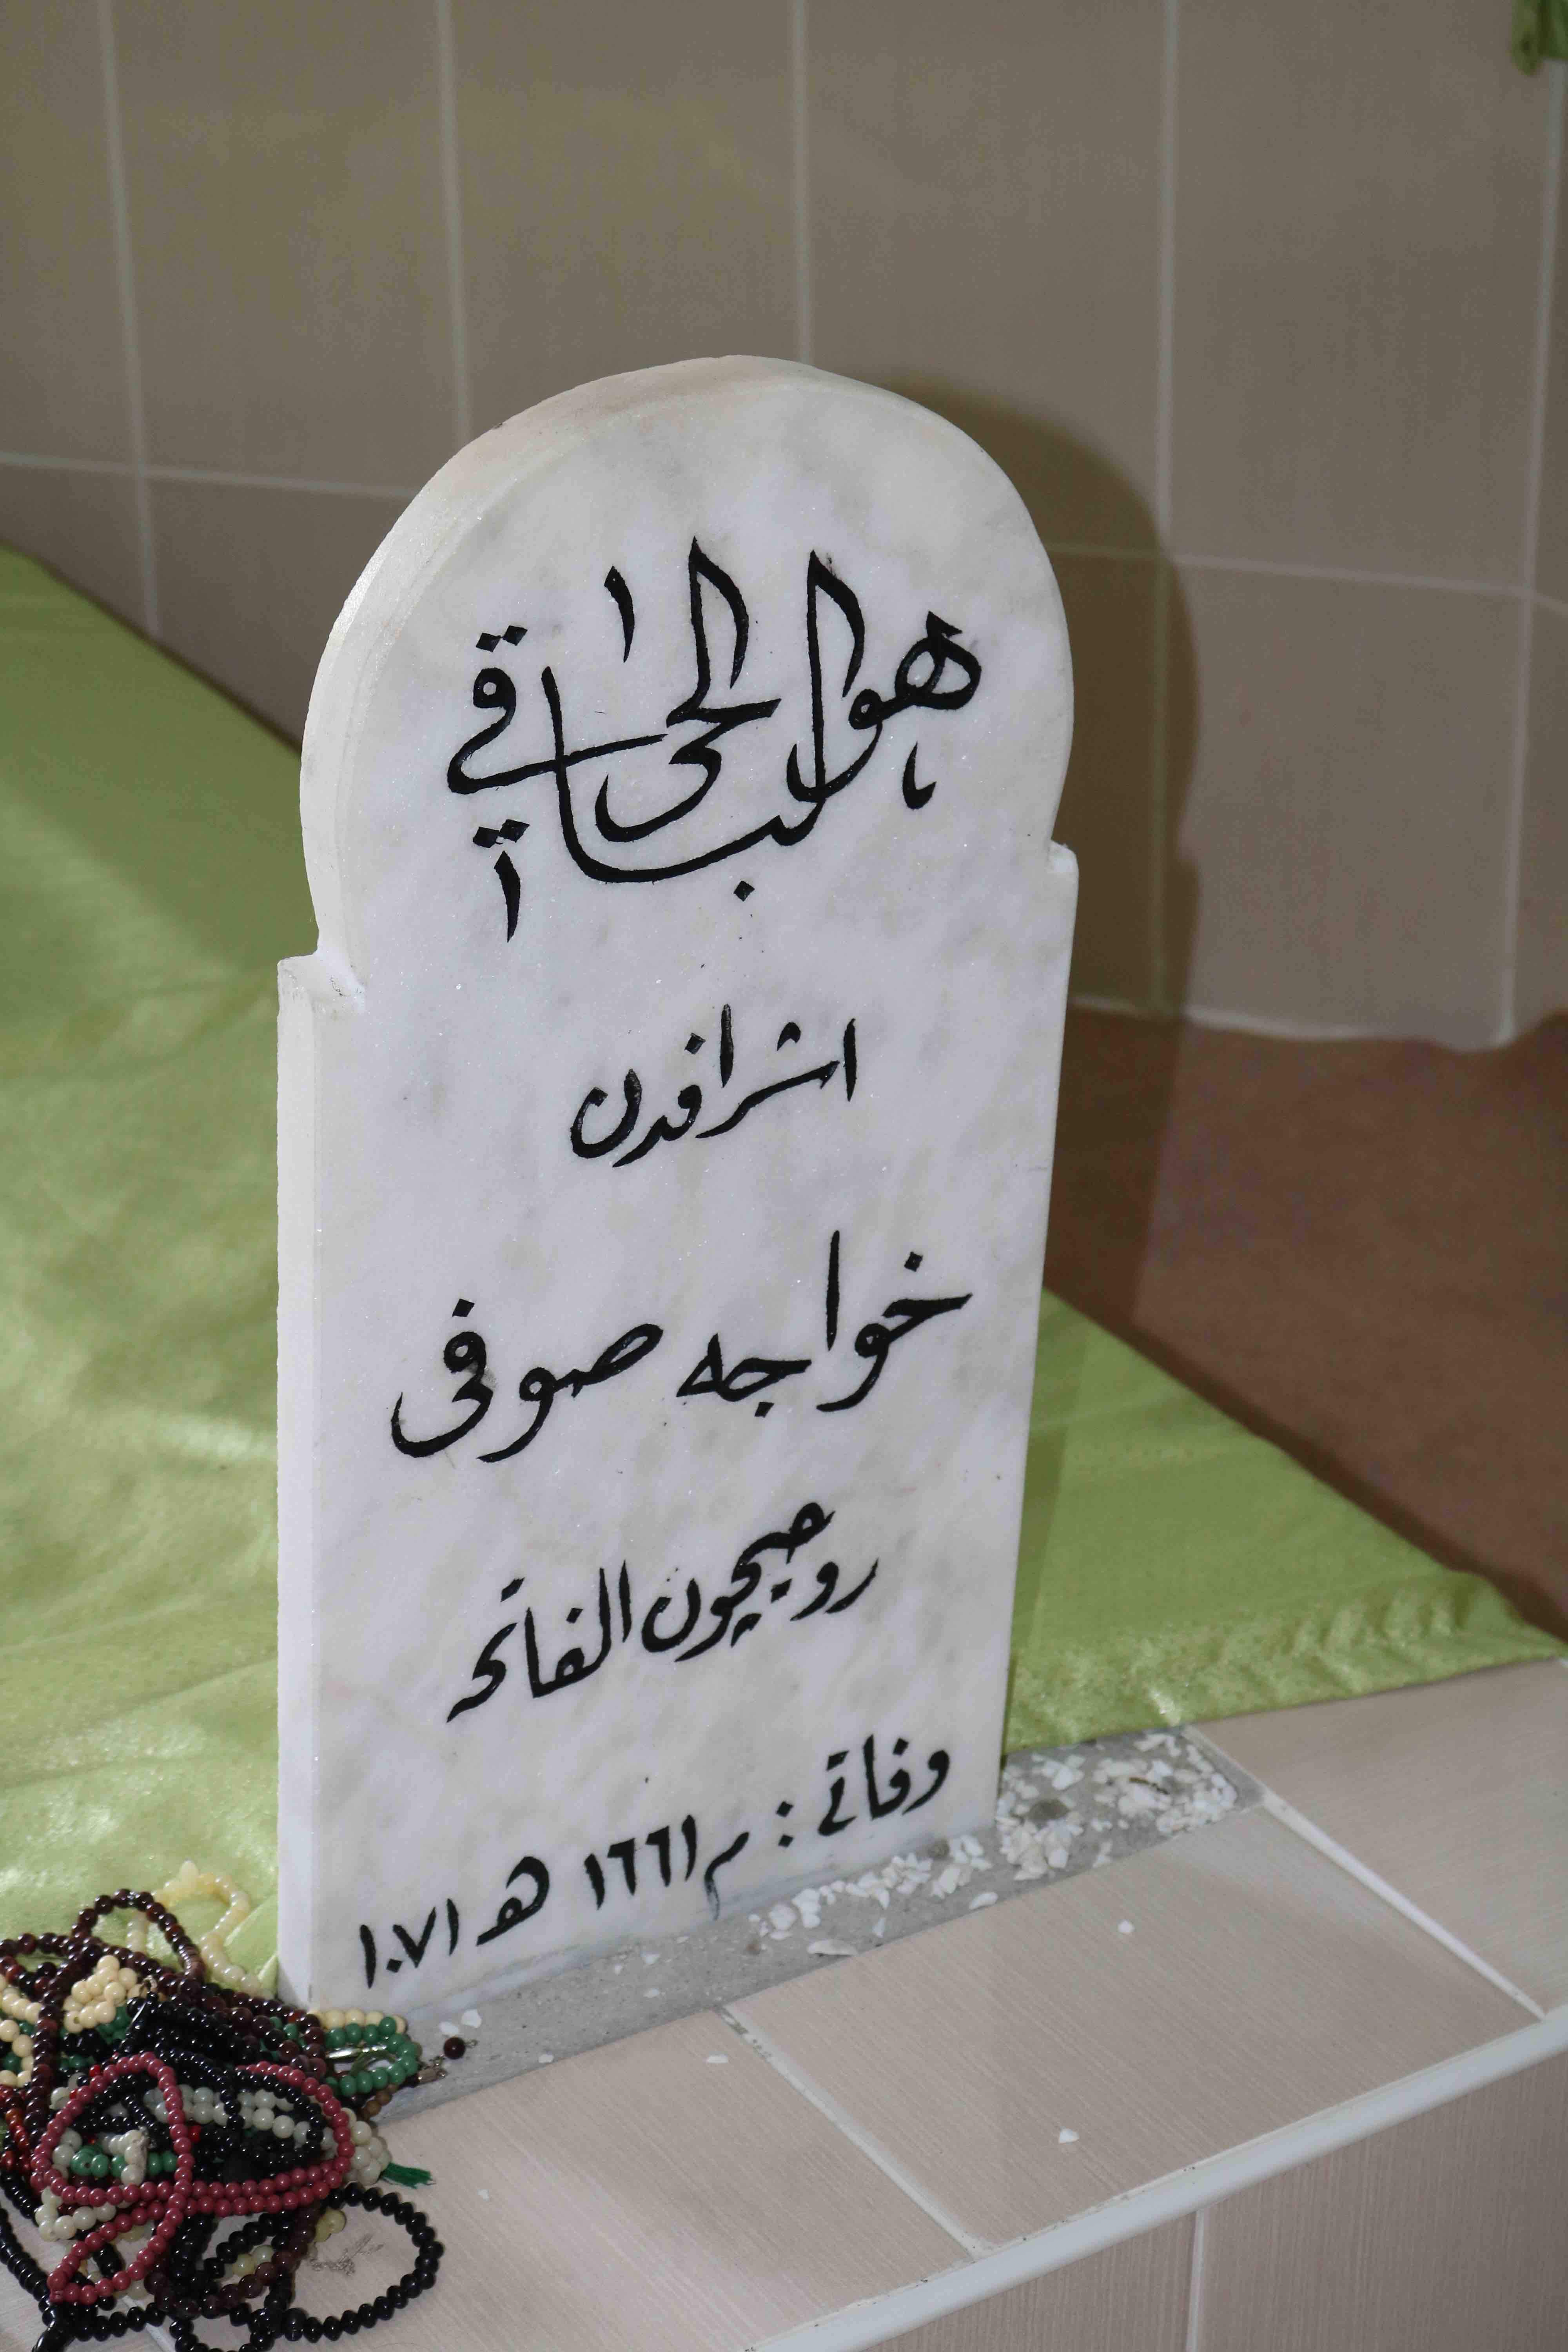 هو الحي الباقي
اشرافدن
خواجه صوفى
روحيچون الفاتحه
وفاتى : م ١٦٦١ هـ ١٠٧١